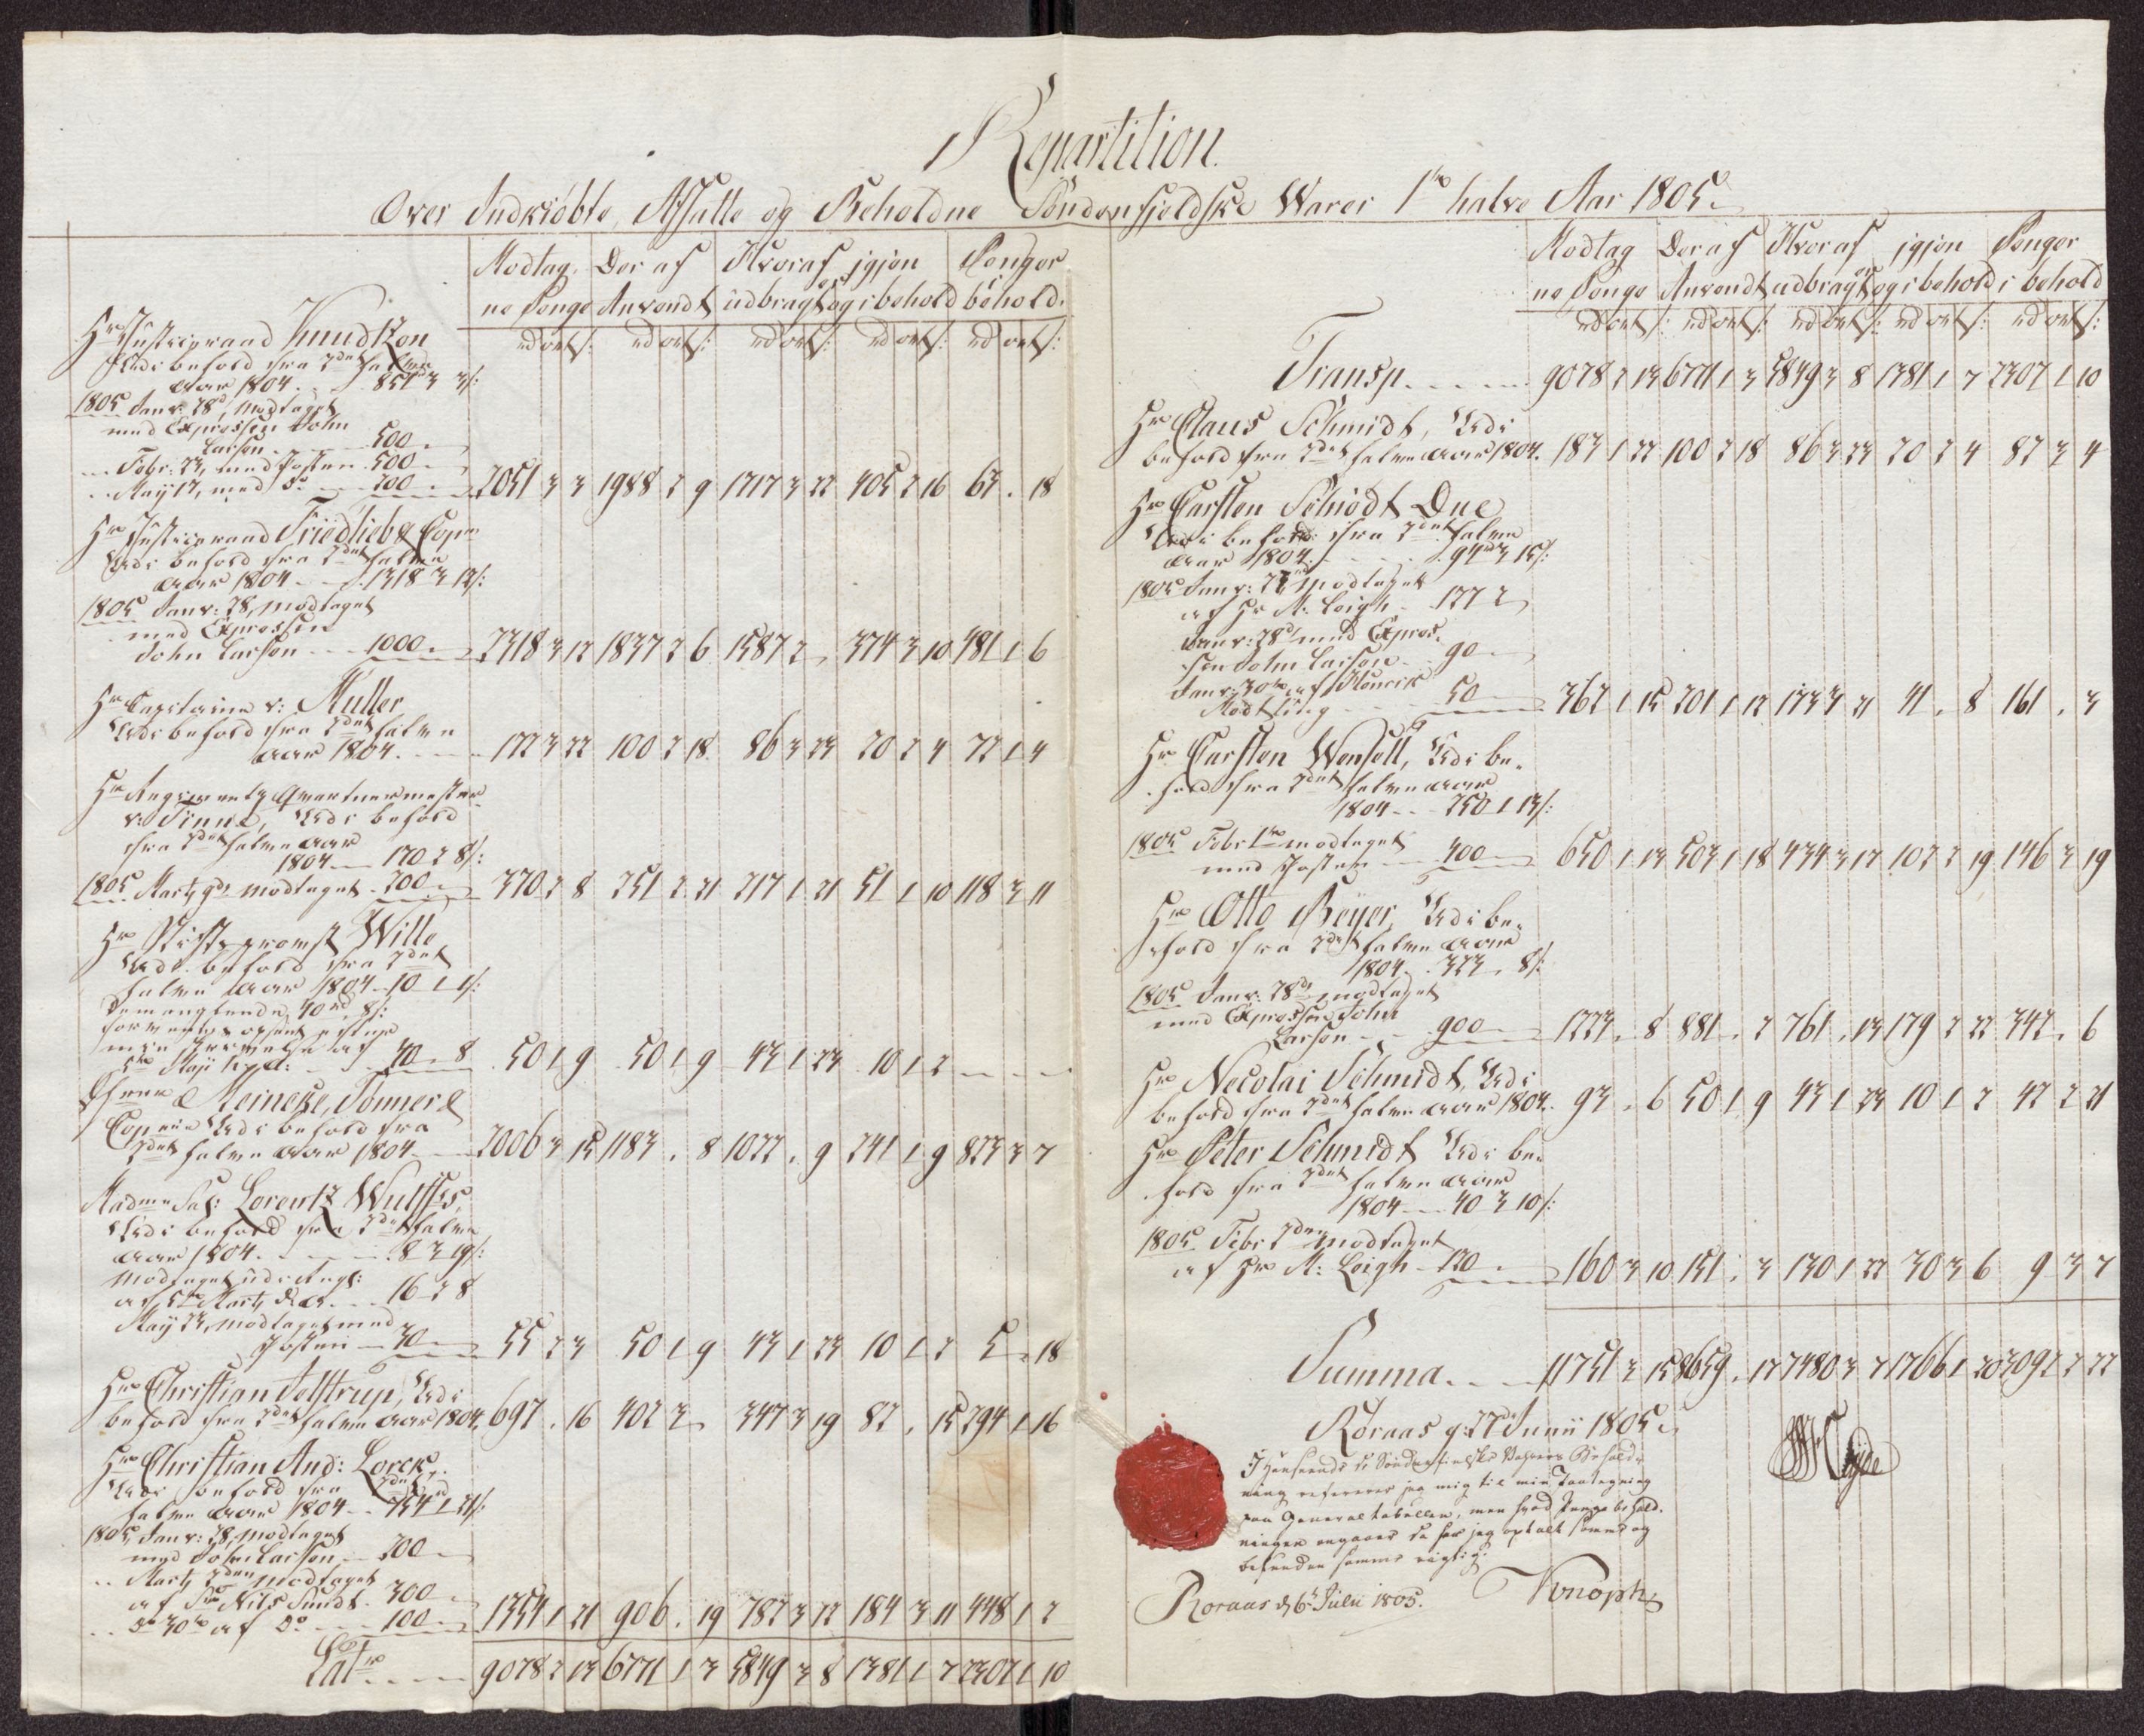 Repartition.
Over Indkiöbte, Afsatte og Beholdne Söndenfjeldske Warer 1te halve Aar 1805.
Modtag, Deraf Hvoraf igjen Penger
ne Penge Anvendt udbragt og i behold i behold.
rd ort ß: rd ort ß: rd ort ß: rd ort ß: rd ort ß:
Hr Justiceraad Knudtzon
Udi behold fra 2det halve
Aar 1804. 851 3 3 ß:
1805 Janv: 28d, modtaget
med Expressen John
Larsen 500
Febr: 23, med Posten 500
May 17, med Do 200 2051 3 3 1988 2 9 1717 3 22 405 2 16 63 . 18
Hr Justiceraad Friedlieb & Comp
Udi behold fra 2det halve
Aar 1804 1318 3 12 ß:
1805 Janv: 28, modtaget
med Expressen
John Larsen 1000 2318 3 12 1837 2 6 1587 2 374 3 10 481 1 6
Hr Capitaine v: Müller
Udi behold fra 2det halve
Aar 1804. 172 3 22 100 2 18 86 3 23 20 2 4 72 1 4
Hr Regiments Qvarteermester
v: Finne, Udi behold
fra 2det halve Aar
1804 170 2 8 ß:
1805 Marty 9d modtaget 200 370 2 8 251 2 21 217 1 21 51 1 10 118 3 11
Hr Stiftsprovst Wille
Udi behold fra 2det
halve Aar 1804 10 1 1 ß:
40 . 8 50 1 9 50 1 9 43 1 23 10 1 2
Meincke, Tonner &
Comp Udi behold fra
2det halve Aar 1804 2006 3 15 1183 . 8 1022 . 9 241 1 9 823 3 7
Madme Sal: Lorentz Wulff
Udi behold fra 2det halve
Aar 1804. 8 3 19 ß:
Modtaget
16 2 8
May 23, modtaget med
Posten 30 55 2 3 50 1 9 43 1 23 10 1 2 5 . 18
Hr Christian Jelstrup, Udi
behold fra 2det halve Aar 1804. 697 . 16 402 3 347 3 19 82 . 15 294 1 16
Hr Christian And: Lorck,
Udi behold fra 2det
halve Aar 1804 754 1 21 ß:
1805 Janv: 28, modtaget
med John Larsen 200
Marty 2den modtaget
af Nils Sundt 300
Do 30te af Do 100 1354 1 21 906 . 19 782 3 22 184 3 11 448 1 2
Lat 9078 2 13 6771 1 3 5849 3 8 1381 1 7 2307 1 10
Modtag Deraf Hvoraf igjen Penger
ne Penge Anvendt udbragt og i behold i behold
rd ort ß: rd ort ß: rd ort ß: rd ort ß: rd ort ß:
Transp 9078 2 13 6771 1 3 5849 3 8 1381 1 7 2307 1 10
Hr Claus Schmidt, Udi
behold fra 2det halve Aar 1804. 183 1 22 100 2 18 86 3 23 20 2 4 82 3 4
Hr Carsten Schiödt Due
Udi behold fra 2det halve
Aar 1804. 94 3 15 ß:
1805 Janv: modtaget
af Hr M. Leigh 127 2
Janv: 28d med Expres-
sen John Larsen 90
Janv: 30te af
50 362 1 15 201 1 12 173 3 21 41 . 8 161 . 3
Hr Carsten Wensell, Udi be-
hold fra 2det halve Aar
1804 250 1 13 ß:
1805 Febr 1te modtaget
med Posten 400 650 1 13 503 1 18 434 3 17 102 2 19 146 3 19
Hr Otto Beyer, Udi be-
hold fra 2det halve Aar
1804 323 . 8 ß:
1805 Janv: 28d modtaget
med Expressen John
Larsen 900 1223 . 8 881 . 2 761 . 13 179 2 22 342 . 6
Hr Necolai Schmidt, Udi
behold fra 2det halve Aar 1804. 93 . 6 50 1 9 43 1 23 10 1 2 42 2 21
Hr Peter Schmidt Udi be-
hold fra 2det halve Aar
1804 40 3 10 ß:
1805 Febr 2den modtaget
af Hr M: Leigh 120 160 3 10 151 . 3 130 1 22 30 3 6 9 3 7
Summa 11751 3 15 8659 . 17 7480 3 7 1766 1 20 3092 2 22
Röraas d: 27 Junii 1805
I Henseende de Söndenfieldske Vahrers Behold-
ning refererer jeg mig til min Paategning
paa Generaltabellen, men hvad Penge behold-
ningen angaaer da har jeg optalt samme og
befunden samme rigtig.
Roraas d 6 Julii 1805. Knoph